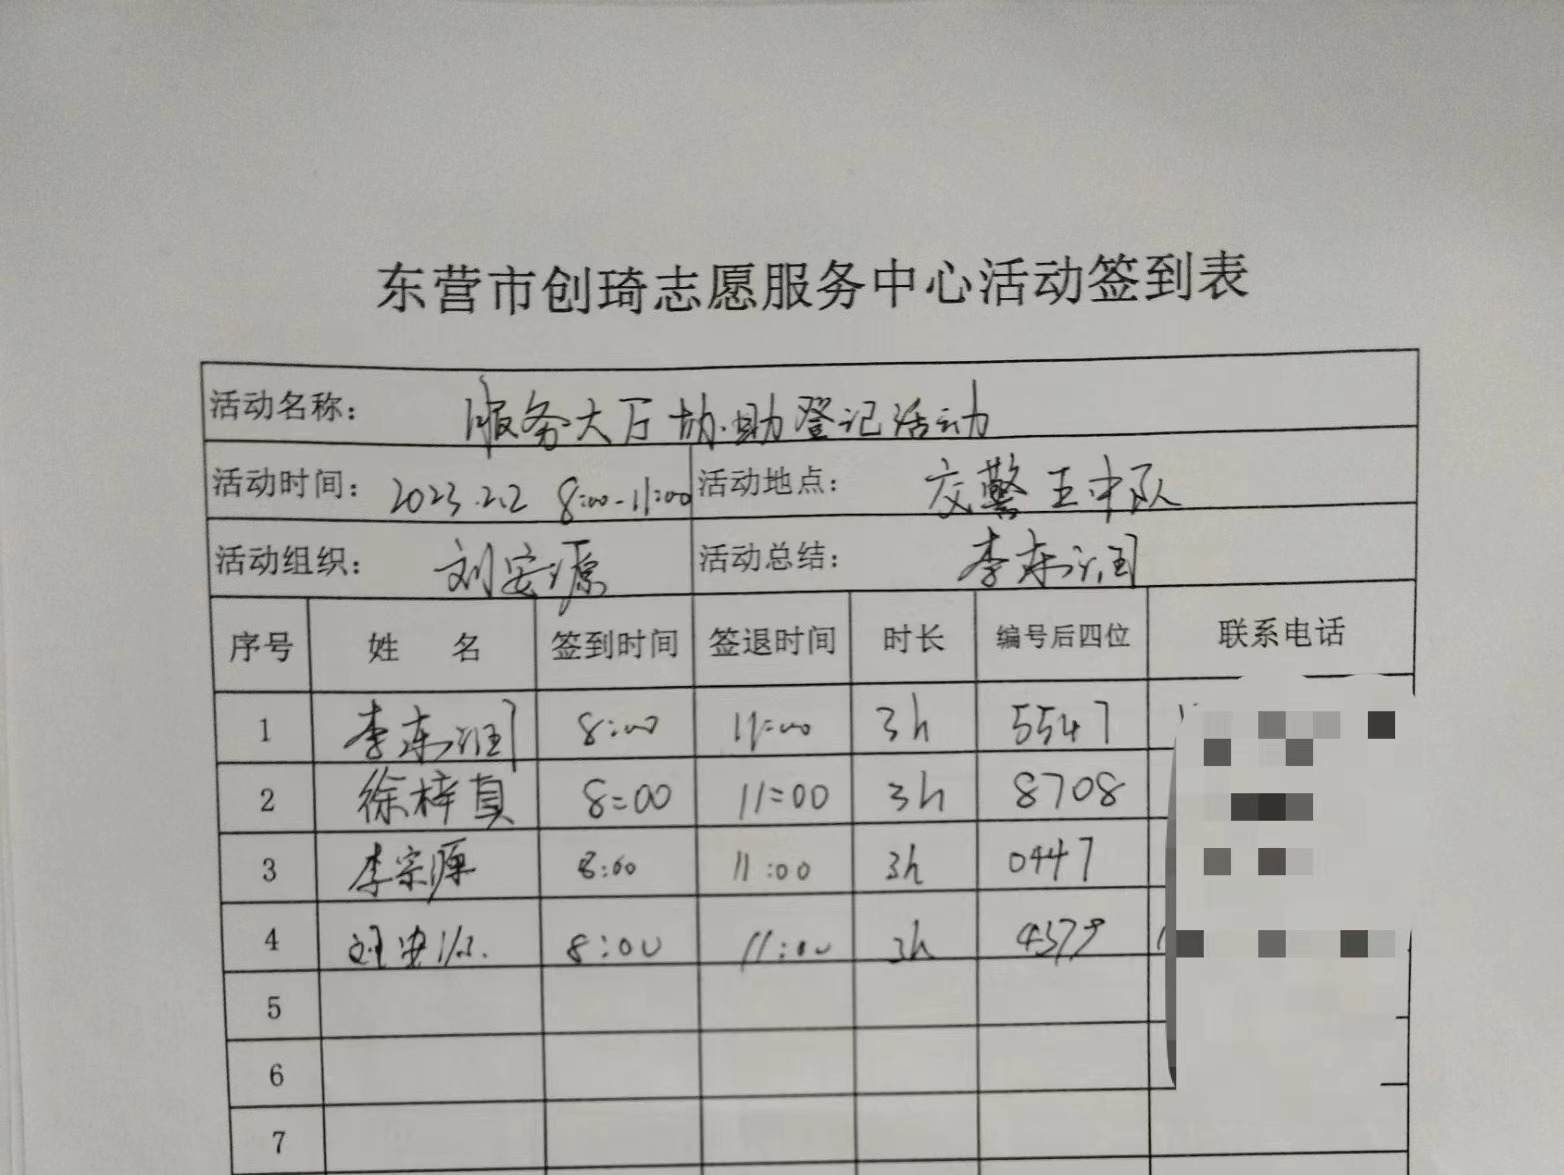 东营市创琦志愿服务中心活动签到表
活动名称： 服务大厅协助登记活动
活动时间： 2023.2.2 8:00-11:00 活动地点： 交警五中队
活动组织： 刘安源 活动总结： 李东润
序号 姓 名 签到时间 签退时间 时长 编号后四位 联系电话
1 李东润 8:00 11:00 3h 5547
2 徐梓真 8:00 11:00 3h 8708
3 李宗源 8:00 11:00 3h 0447
4 8:00 11:00 3h 4379
5
6
7